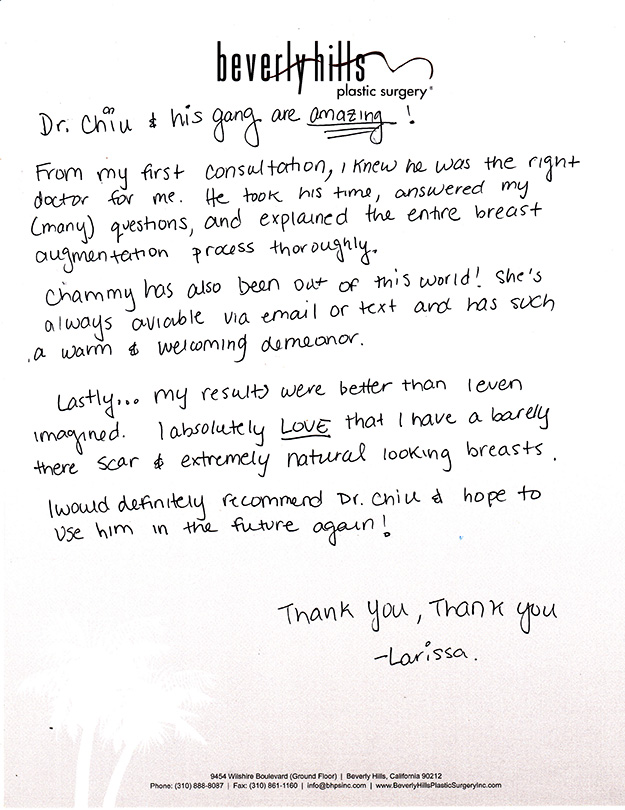 beverly hills
plastic surgery®
Dr. Chiu & his gang are amazing!
From my first consultation, I knew he was the right
doctor for me. He took his time, answered my
(many) questions, and explained the entire breast
augmentation process thoroughly.
Chammy has also been out of this world! She's
always aviable via email or text and has such
a warm & welcoming demeanor.
Lastly... my results were better than I even
imagined. I absolutely LOVE that I have a barely
there scar & extremely natural looking breasts.
I would definitely recommend Dr. Chiu & hope to
use him in the future again!
Thank you, Thank you
-Larissa.
9454 Wilshire Boulevard (Ground Floor) | Beverly Hills, California 90212
Phone: (310) 888-8087 | Fax: (310) 861-1160 | info@bhpsinc.com | www.BeverlyHillsPlasticSurgeryInc.com